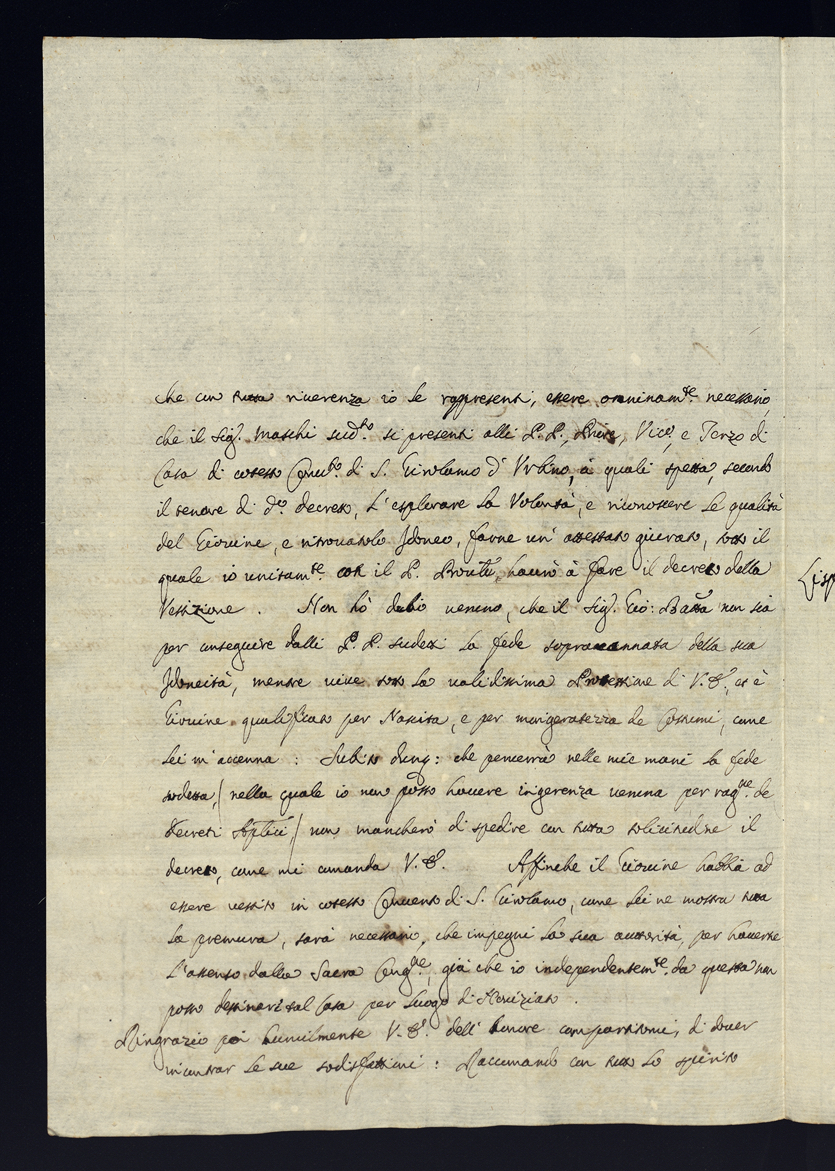 che con tutta riverenza io le rappresenti, essere oninam.te necessario,
che il Sig.r Maschi sud.to si presenti alli P. P. Priore, Vic.o, e Terzo di
Casa di cotesto Conv.to di S. Girolamo d' Urbino, à quali spetta, secondo
il tenore di d.o decreto, l'esplorare la Volontà, e riconoscere le qualità
del Giovine, e ritrovatolo Idoneo, farne un' attestato giurato, sotto il
quale io unitam.te con il P. haurò à fare il decreto della
Vestizione. Non hò dubio veruno, che il Sig.r Gio: Batta non sia
per conseguire dalli P. P. sudetti la fede sopracennata della sua
Idoneità, mentre vive sotto la validissima Protettione di V. S., et è
Giovine qualificato per Nascita, e per morigeratezza de Costumi, come
lei m'accenna: Subito dunq: che perverrà nelle mie mani la fede
sodetta, / nella quale io non posso havere ingerenza veruna per rag.ne de
decreti / non mancherò di spedire con tutta solicitudine il
decreto, come mi comanda V. S. Affinche il Giovine habbia ad
essere vestito in cotesto Convento di S. Girolamo, come lei ne mostra tutta
la premura, sarà necessario, che impegni la sua autorità, per haverne
l'assenso dalla Sacra Cong.ne, già che io independentem.te da questa non
posso destinare tal Casa per luogo di Noviziato.
Ringrazio poi humilmente V. S. dell' honore compartitomi, di dover
incontrar le sue sodisfattioni: Raccomando con tutto lo spirito